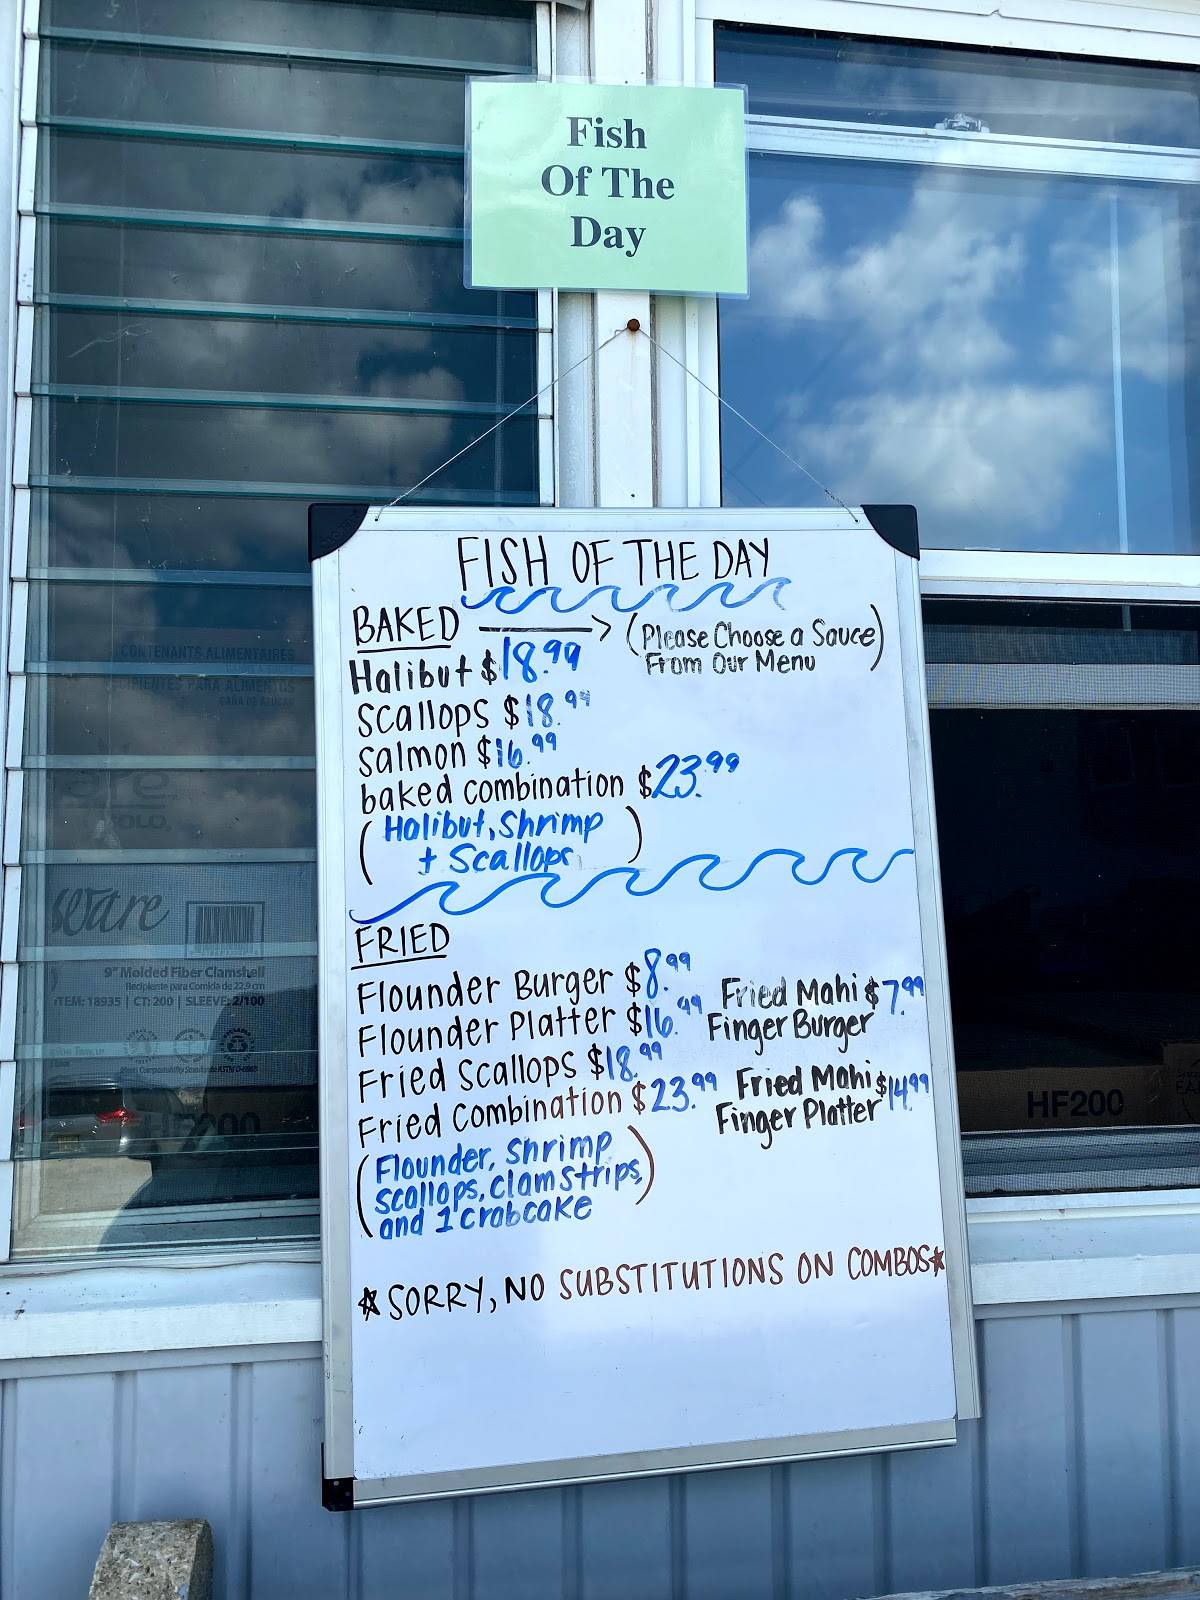 Fish
Of The
Day
FISH OF THE DAY
BAKED
(Please Choose a Sauce)
From Our Menu
Halibut $18.99
Scallops $18.99
Salmon $16.99
baked combination $23.99
(Halibut, Shrimp
+ Scallops)
FRIED
Flounder Burger $8.99
Flounder Platter $16.99
Fried Scallops $18.99
Fried Combination $23.99
(Flounder, Shrimp
Scallops, Clam Strips,
and 1 Crabcake)
Fried Mahi $7.99
Finger Burger
Fried Mahi $14.99
Finger Platter
*SORRY, NO SUBSTITUTIONS ON COMBOS*
CONTENANTS ALIMENTAIRES
ware
9" Molded Fiber Clamshell
Recipiente para Comida de 22,9 cm
ITEM: 18935 | CT: 200 | SLEEVE: 2/100
HF200
HF200